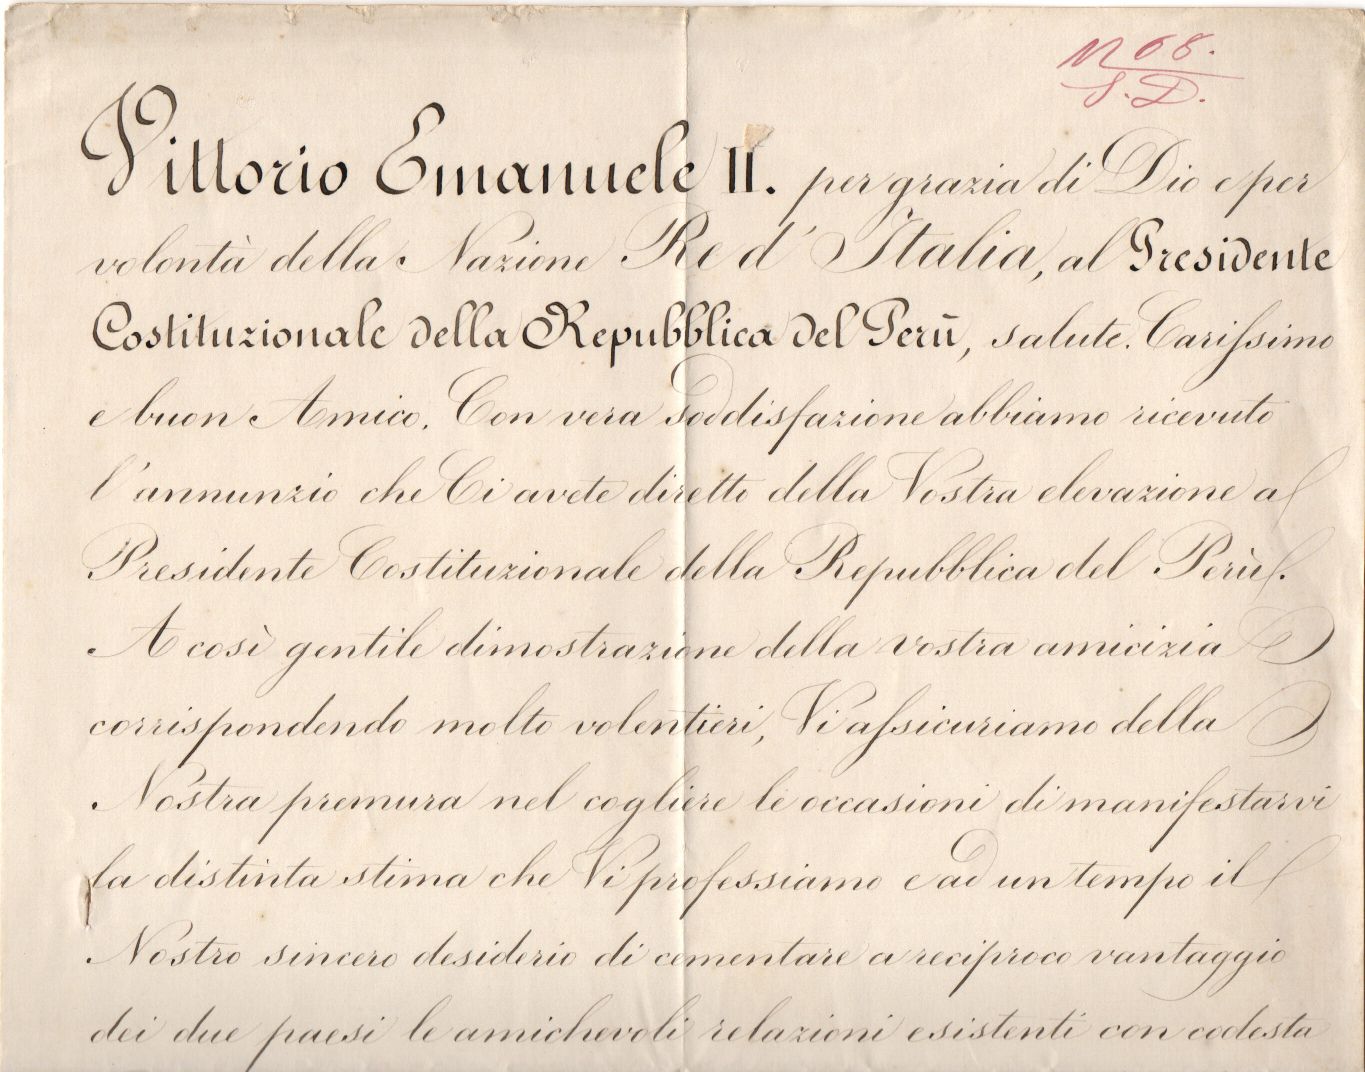 N 68.
S.D.
Vittorio Emanuele II. per grazia di Dio e per
volontà della Nazione Re d'Italia, al Presidente
Costituzionale della Repubblica del Perù, salute. Carissimo
e buon Amico. Con vera soddisfazione abbiamo ricevuto
l'annunzio che Ci avete diretto della Vostra elevazione a
Presidente Costituzionale della Repubblica del Perù.
A così gentile dimostrazione della vostra amicizia
corrispondendo molto volentieri, Vi assicuriamo della
Nostra premura nel cogliere le occasioni di manifestarvi
la distinta stima che Vi professiamo e ad un tempo il
Nostro sincero desiderio di cementare a reciproco vantaggio
dei due paesi le amichevoli relazioni esistenti con codesta